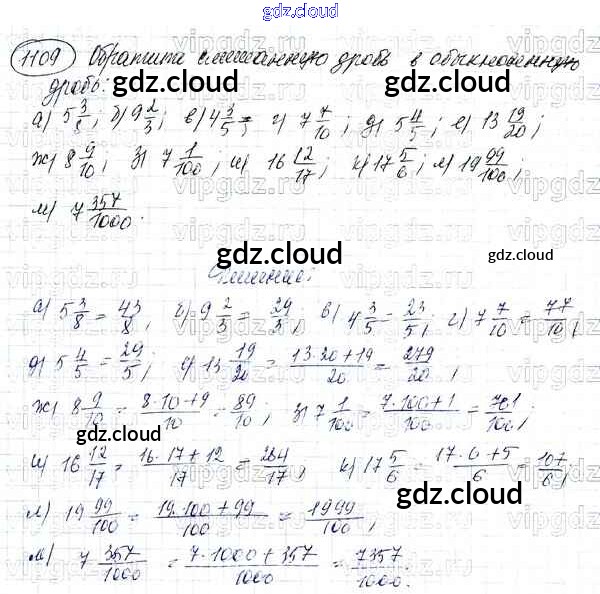 gdz.cloud
1109 Обратите смешанную дробь в обыкновенную
дробь:
а) 5 3/8; б) 9 2/3; в) 4 3/5; г) 7 7/10; д) 5 4/5; е) 13 19/20;
ж) 8 9/10; з) 7 1/100; и) 16 12/17; к) 17 5/6; л) 19 99/100;
м) 7 357/1000.
Решение:
а) 5 3/8 = 43/8; б) 9 2/3 = 29/3; в) 4 3/5 = 23/5; г) 7 7/10 = 77/10;
д) 5 4/5 = 29/5; е) 13 19/20 = 13·20+19/20 = 279/20;
ж) 8 9/10 = 8·10+9/10 = 89/10; з) 7 1/100 = 7·100+1/100 = 701/100;
и) 16 12/17 = 16·17+12/17 = 284/17; к) 17 5/6 = 17·6+5/6 = 107/6;
л) 19 99/100 = 19·100+99/100 = 1999/100;
м) 7 357/1000 = 7·1000+357/1000 = 7357/1000.
gdz.cloud